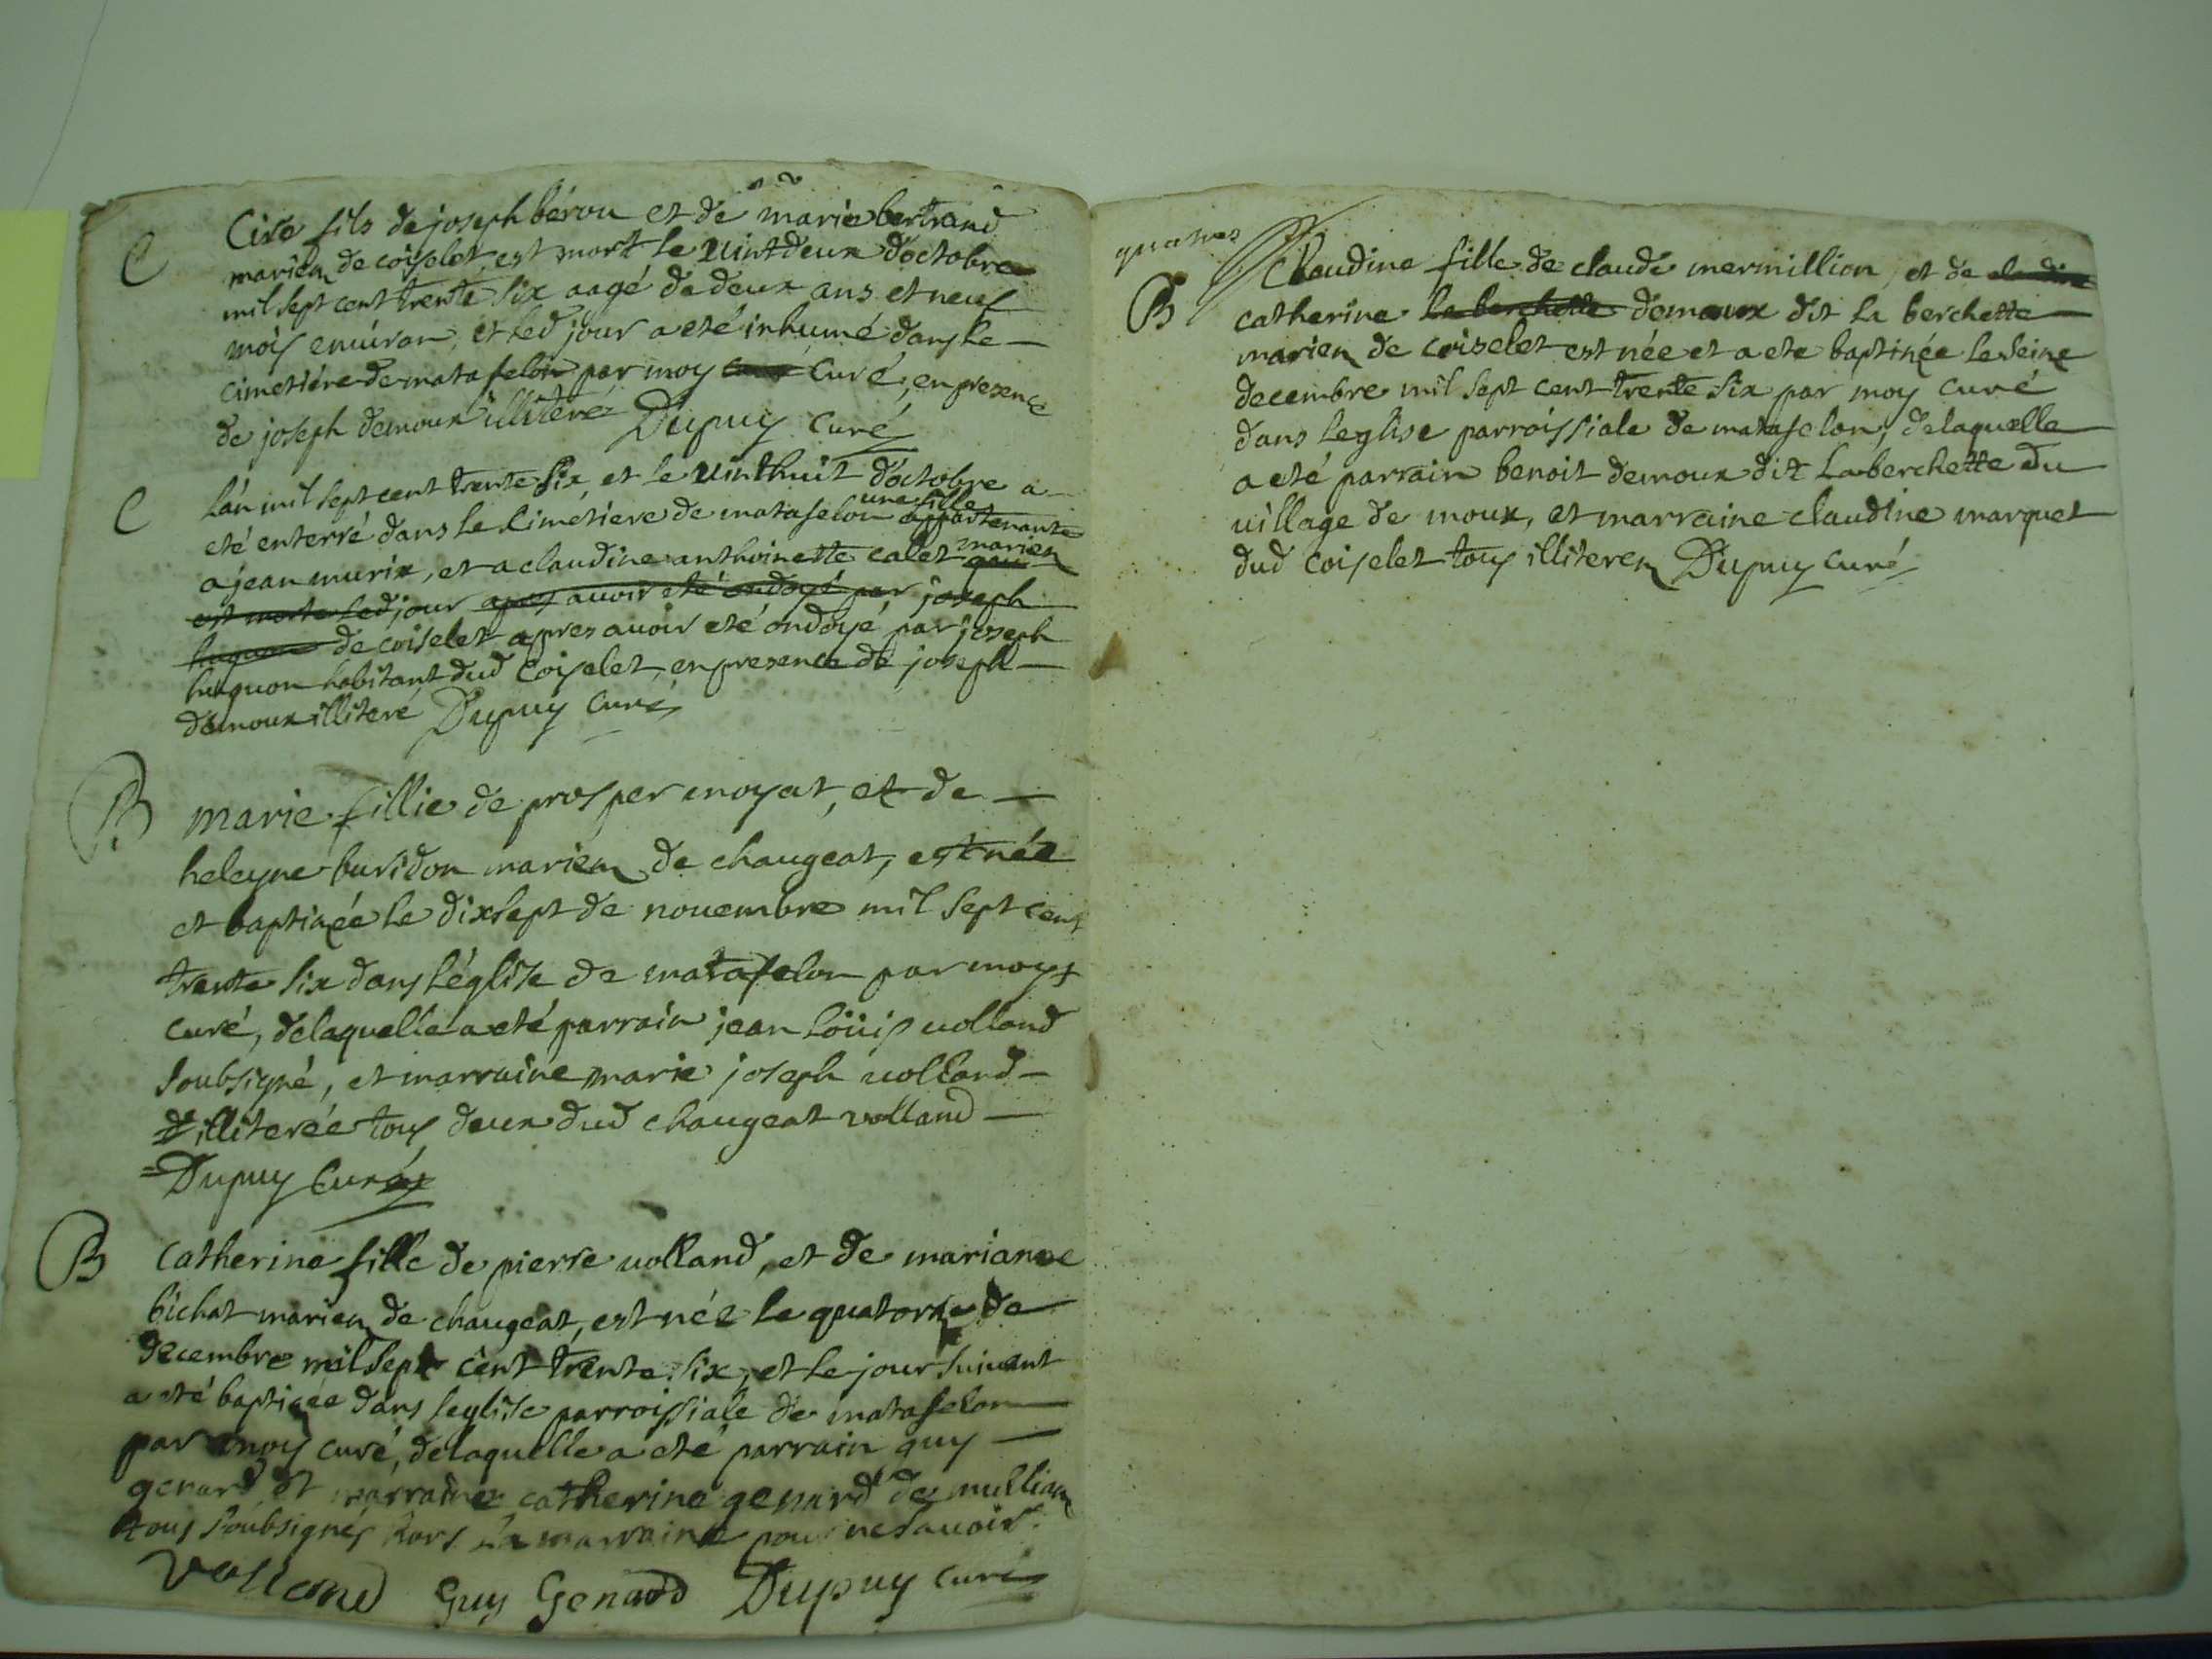 C Cire fils de joseph bérou et de marie bertrand
mariez de coiselet est mort le vint deux d'octobre
mil sept cent trente six aagé de deux ans et neuf
mois enuiron, et led jour a eté inhumé dans le
cimetiére de matafelon par moy curé, en presence
de joseph demoux illiteré Dupuy curé
C lán mil sept cent trente six, et le vint huit d'octobre a
eté enterré dans le cimetiere de matafelon une fille appartenante
a jean murix, et a claudine anthoinette calet mariez qui
est morte led jour apres auoir eté ondoyé par joseph
huguon de coiselet apres auoir eté ondoyé par joseph
huguon habitant dud coiselet, en presence de joseph
demoux illiteré Dupuy Curé
B marie fillie de prosper moyat, et de
heleyne buridon mariez de chaugeat, est née
et baptizée le dixsept de nouembre mil sept cent
trente six dans l'église de matafelon par moy
curé, de laquelle a eté parrain jean loüis uolland
soubsigné, et marraine marie joseph uolland
illiterée tous deux dud chaugeat volland
Dupuy Curé
B Catherine fille de pierre uolland, et de marianne
bichat mariez de chaugeat, est née le quatorze de
decembre mil sept cent trente six, et le jour suiuant
a eté baptizee dans leglise parroissiale de matafelon
par moy curé, de laquelle a eté parrain guy
genard et marraine catherine genard de
tous soubsignés hors la marraine pour ne sauoir.
Volland Guy Genard Dupuy curé
quatres
B Claudine fille de claude mermillion, et de claudine
catherine la berchette demoux dit la berchette
mariez de coiselet est née et a ete baptizée le seize
decembre mil sept cent trente six par moy curé
dans leglise parroissiale de matafelon, de laquelle
a eté parrain benoit demoux dit la berchette du
uillage de moux, et marraine claudine marquet
dud coiselet tous illiterez Dupuy curé